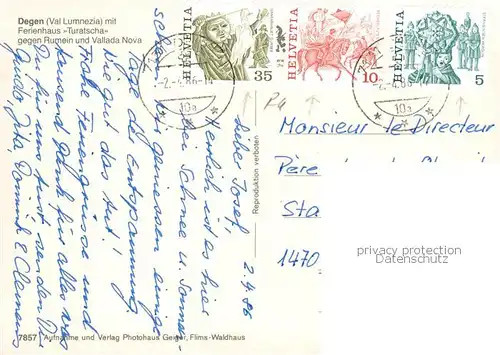 Degen (Val Lumnezia) mit
Ferienhaus »Turatscha«
gegen Rumein und Vallada Nova
HELVETIA 35
HELVETIA 10
HELVETIA 5
-2.-4.86-
10a
2. 4. 86
Lieber Josef,
Herrlich ist es hier
bei Schnee u. Sonnen-
Wir geniessen einige
Tage der Entspannung
Wie gut das tut!
Frohe Feriengrüsse und
tausend Dank für alles was
Du für uns tust, senden Dir
Guido, Jda, Dominik & Clemens
Reproduktion verboten
Monsieur le Directeur
Père
Sta
1470
privacy protection
©Ansichtskartenwelt.eu
7857 Aufnahme und Verlag Photohaus Geiger, Flims-Waldhaus